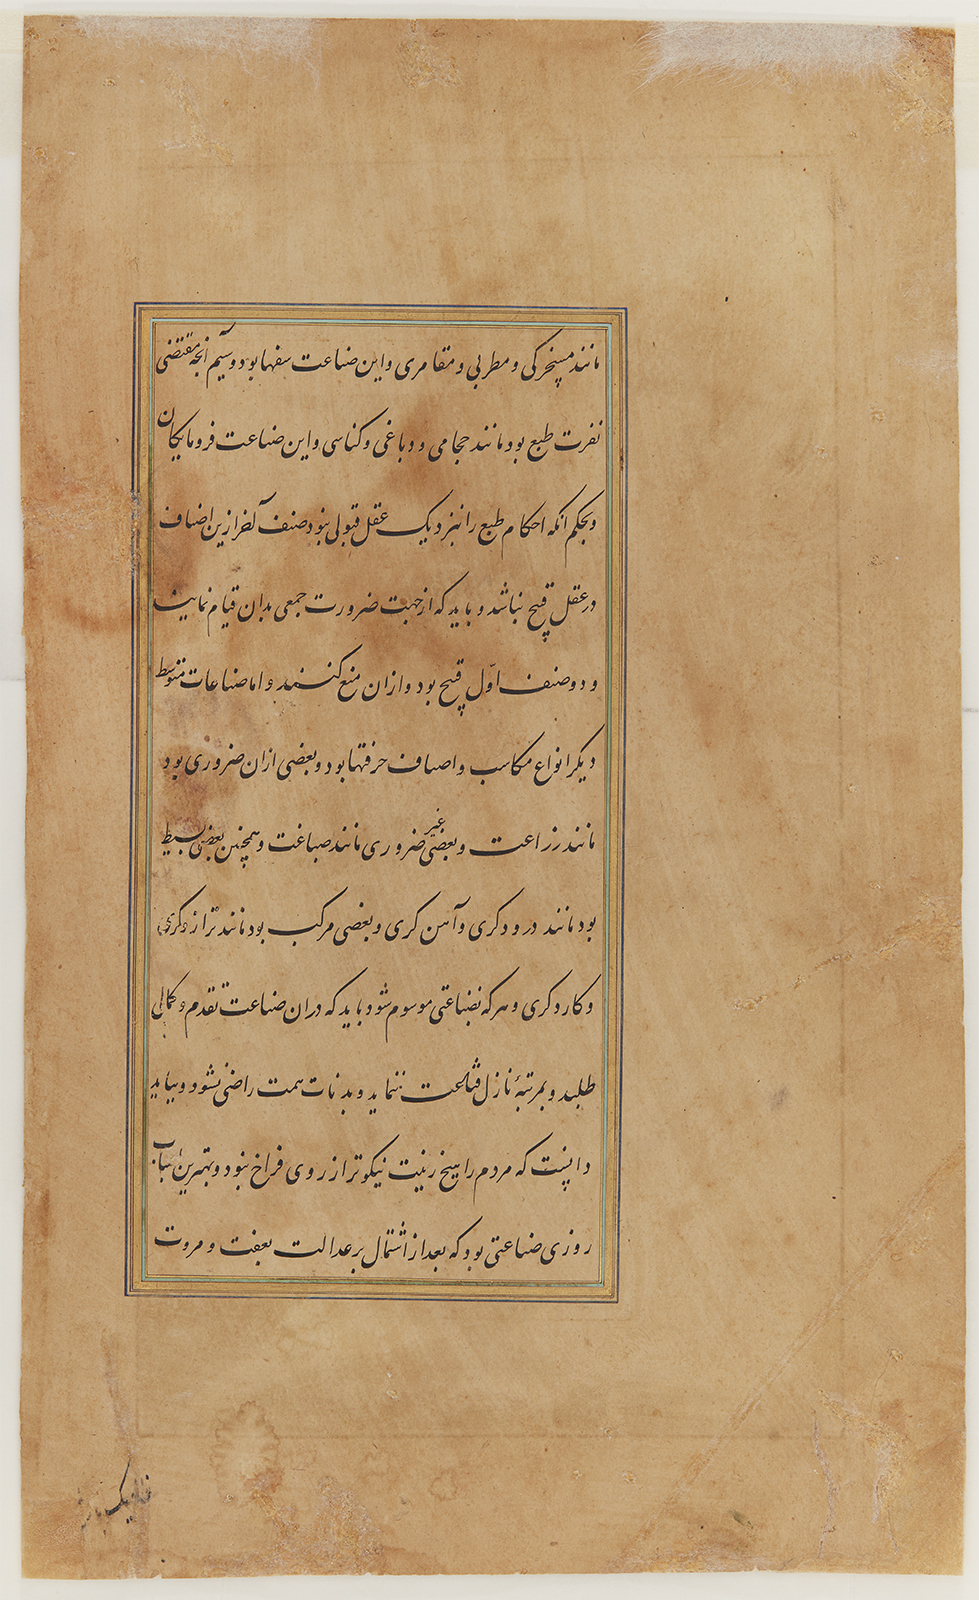 مانند مسخرگی و مطربی و مقامری و این صناعت سفها بود و سیم آنچه مقتضی
نفرت طبع بود مانند حجامی و دباغی و کناسی و این صناعت فرومایگان
و بحکم انکه احکام طبع را بنزدیک عقل قبولی نبود صنف آخر ازین اصناف
در عقل قبیح نباشد و باید که از جهت ضرورت جمعی بدان قیام نمایند
و دو صنف اوّل قبیح بود و ازان منع کنند و اما صناعات متوسط
دیکر انواع مکاسب و اصناف حرفتها بود و بعضی ازان ضروری بود
مانند زراعت و بعضی غیر ضروری مانند صباغت و همچنین بعضی بسیط
بود مانند درودکری و آهن کری و بعضی مرکب بود مانند ترازوکری
و کاردکری و هر که بصناعتی موسوم شود باید که دران صناعت تقدم و کمال
طلبد و بمرتبهٔ نازل قناعت ننماید و بدنائت همت راضی نشود و بباید
دانست که مردم را هیچ زینت نیکوتر از روی فراخ نبود و بهترین اسباب
روزی صناعتی بود که بعد از اشتمال بر عدالت بعفت و مروت